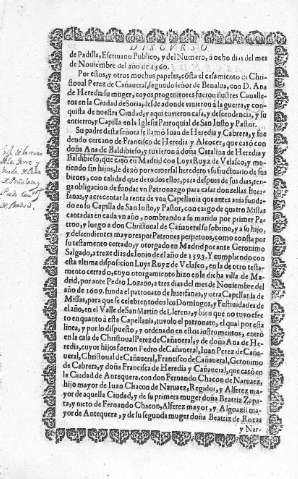 DISCVRSO
de Padilla, Escriuano Publico, y del Numero, a ocho dias del mes
de Nouiembre del año de 1560.
Por estos, y otros muchos papeles, cõsta el casamiento de Chris-
toual Perez de Cañaueral, segundo señor de Benalua, con D. Ana
de Heredia su muger, cuyos progenitores fueron ilustres Caualle-
ros en la Ciudad de Soria, desde adonde vinieron a la guerra, y con-
quista de nuestra Ciudad, y aqui tuuieron casa, y descendencia, y su
entierro, y Capilla en la Iglesia Parroquial de San Iusto y Pastor.
Su padre desta señora se llamò Iuan de Heredia y Cabrera, y fue
hermano de Francisco de Heredia y
doña Ana de Baldibieso, y tuuieron a doña Catalina de Heredia y
Baldibieso, que casò en Madrid con Luys Ruyz de Velasco, y mu-
riendo sin hijos, le dexò por vniuersal heredero vsufructuario de sus
bienes, con calidad que de todos ellos, para despues de sus dias, ten-
ga obligacion de fundar vn Patronazgo para casar donzellas huer-
fanas, y acrecentar la renta de vna Capellania que antes auia funda-
do en su Capilla de San Iusto, y Pastor, con cargo de quatro Missas
cantadas en cada vn año, nombrando a su marido por primer Pa-
tron, y luego a don Christoual de Cañaueral su sobrino, y a su hijo,
y descendiente mayor por Patrones perpetuos, como consta por
su testamento cerrado, y otorgado en Madrid por ante Geronimo
Salgado, a treze dias de Iunio de el año de 1593. Y cumpliendo con
esta vltima disposicion Luys Ruyz de Velasco, en la de otro testa-
mento cerrado, cuyo otorgamiento hizo en la dicha villa de Ma-
drid, por ante Pedro Lozano, a tres dias del mes de Nouiembre del
año de 1609. funda el patronato de huerfanas, y otra Capellania de
Missas, para que se celebren todos los Domingos, y Festiuidades de
el año, en el Valle de San Martin de Llerena, y bien que no tuuo efec-
to en quanto à esta Capellania, tuuolo el patronato, el qual por esta
linea, y por lo dispuesto, y ordenado en estos instrumentos, entrò
en la casa de Christoual Perez de Cañaueral, y de doña Ana de He-
redia, cuyos hijos fueron Pedro de Cañaueral, Iuan Perez de Caña-
ueral, Christoual de Cañaueral, Francisco de Cañaueral, Geronimo
de Cabrera, y doña Francisca de Heredia y Cañaueral, que casò en
la Ciudad de Antequera, con don Fernando Chacon de Naruaez,
hijo mayor de Iuan Chacon de Naruaez, Regidor, y Alferez ma-
yor de aquella Ciudad, y de su primera muger doña Beatriz Zapa-
ta, y nieto de Fernando Chacon, Alferez mayor, y Alguazil ma-
yor de Antequera, y de su segunda muger doña Beatriz de Roxas
y Nar-